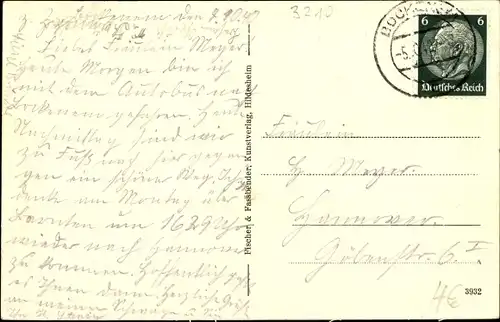 Liebes Fräulein Meyer!
heute Morgen bin ich
mit dem Autobus nach
Bockenem gefahren. Heute
Nachmittag sind wir
zu Fuß nach hier gegan
gen ein schöner Weg. Ich
denke am Montag über
um 16 29 Uhr
wieder nach Hannover
zu kommen. Hoffentlich geht
es Ihnen dann. Herzliche Grüße
an meinen
3210
BOCKENEM
6 6
Deutsches Reich
Fräulein
H. Meyer.
Hannover.
Göbenstr. 6 I
Fischer & Fassbender, Kunstverlag, Hildesheim
3932
4€